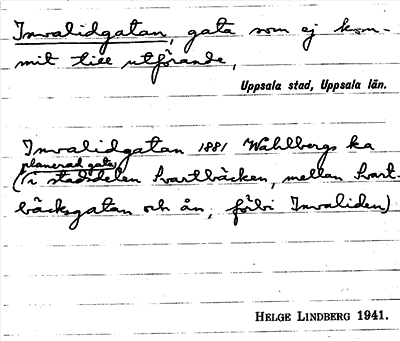 Invalidgatan, gata som ej kom-
mit till utförande,
Uppsala stad, Uppsala län.
Invalidgatan 1881 Wahlbergs ka
planerad gata
(i stadsdelen Svartbäcken, mellan Svart-
bäcksgatan och ån, förbi Invaliden)
HELGE LINDBERG 1941.